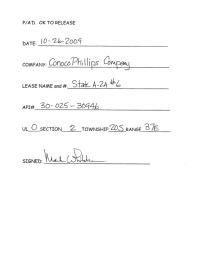 P/AD OK TO RELEASE
DATE: 10-26-2009
COMPANY: ConocoPhillips Company
LEASE NAME and #: State A-2A #6
API# 30-025-30946
UL O SECTION 2 TOWNSHIP 20S RANGE 37E
SIGNED: